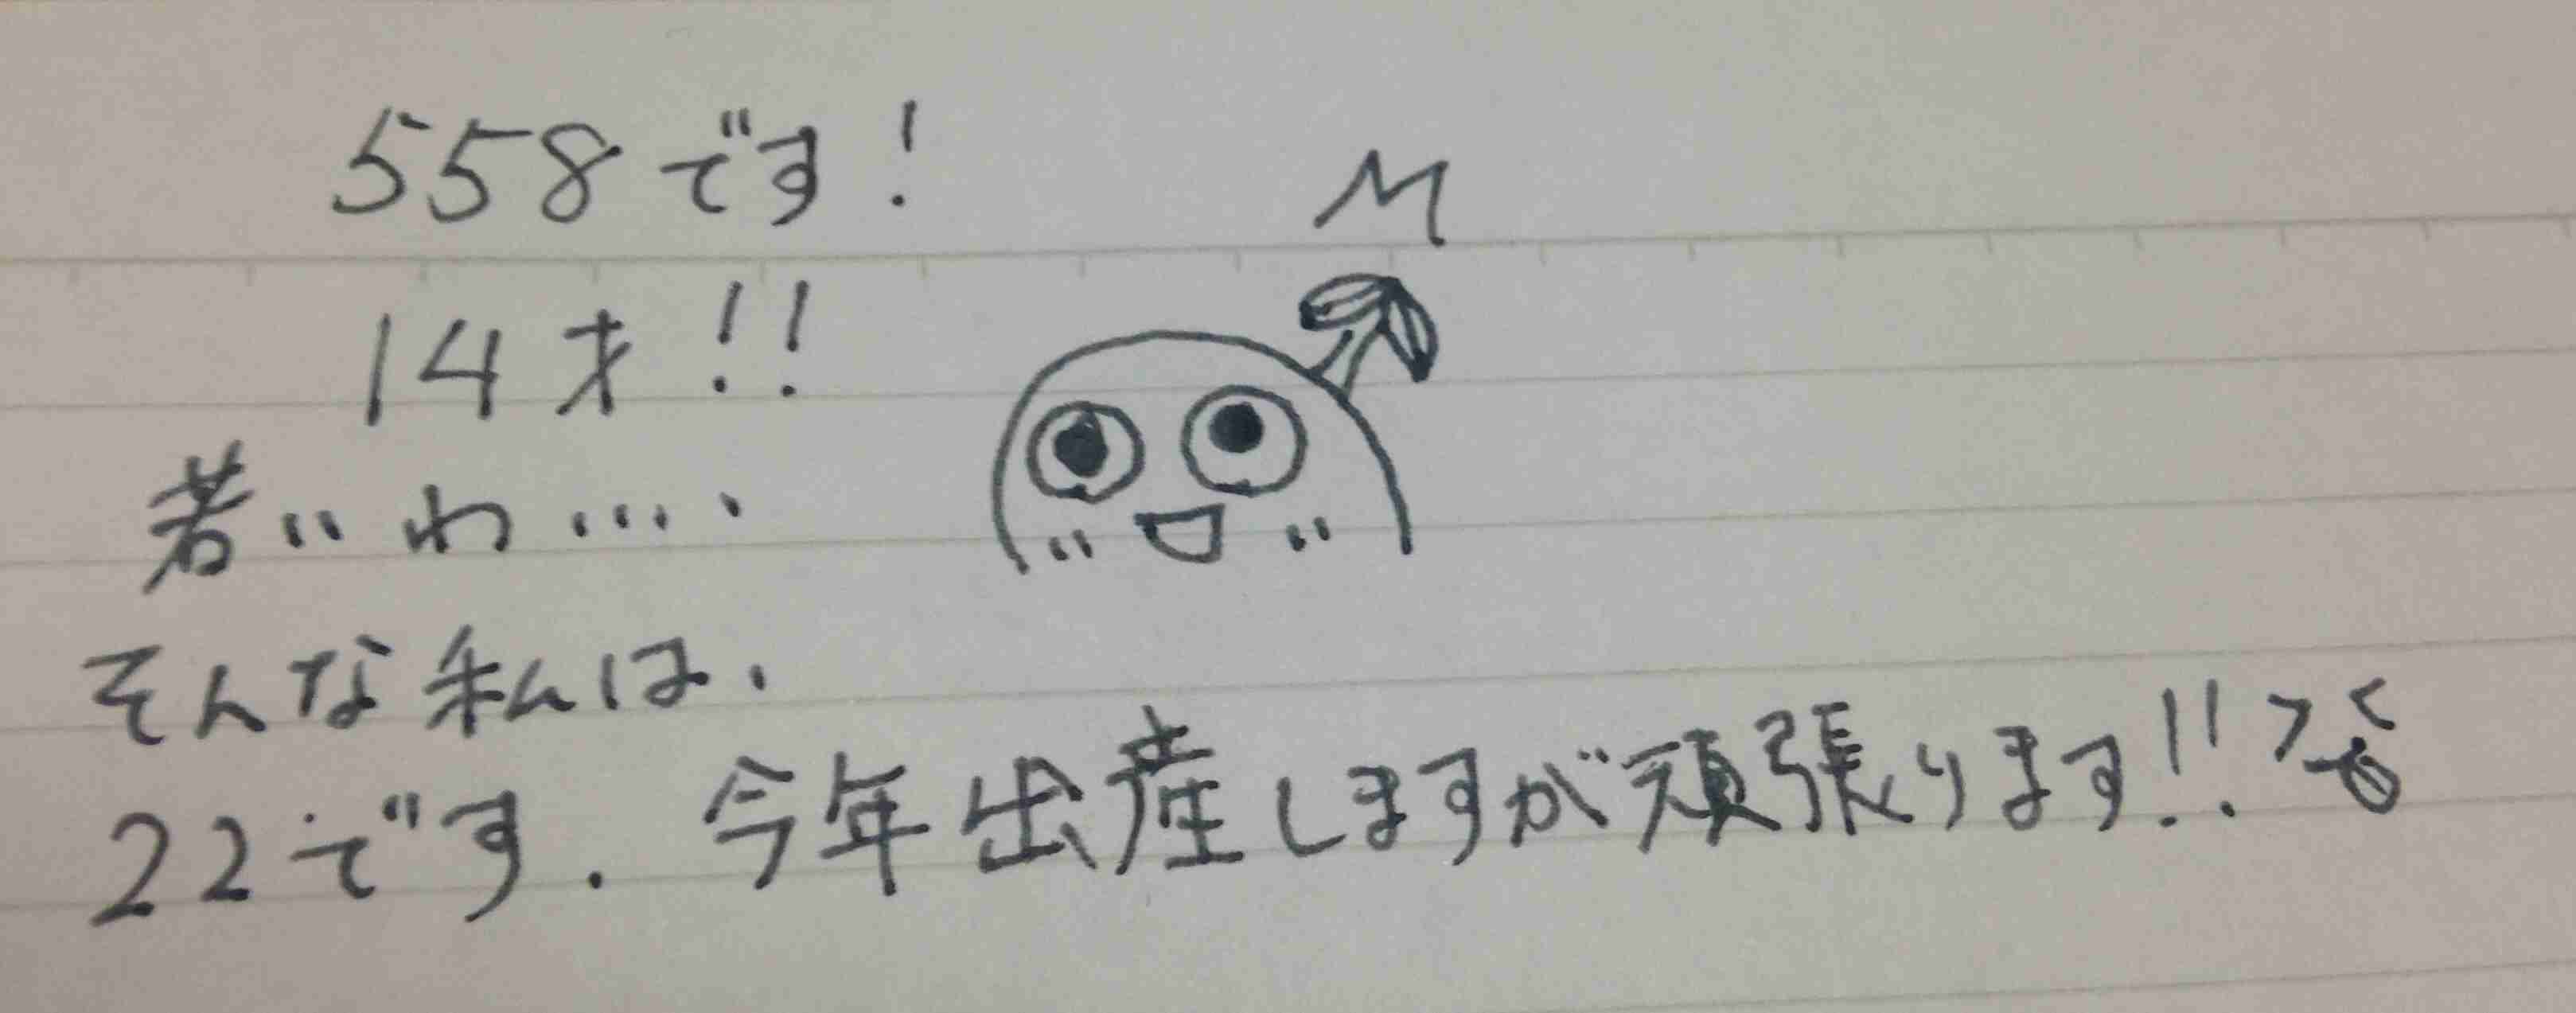 558です!
14才!!
若いわ....
そんな私は、
22です. 今年出産しますが頑張ります!!